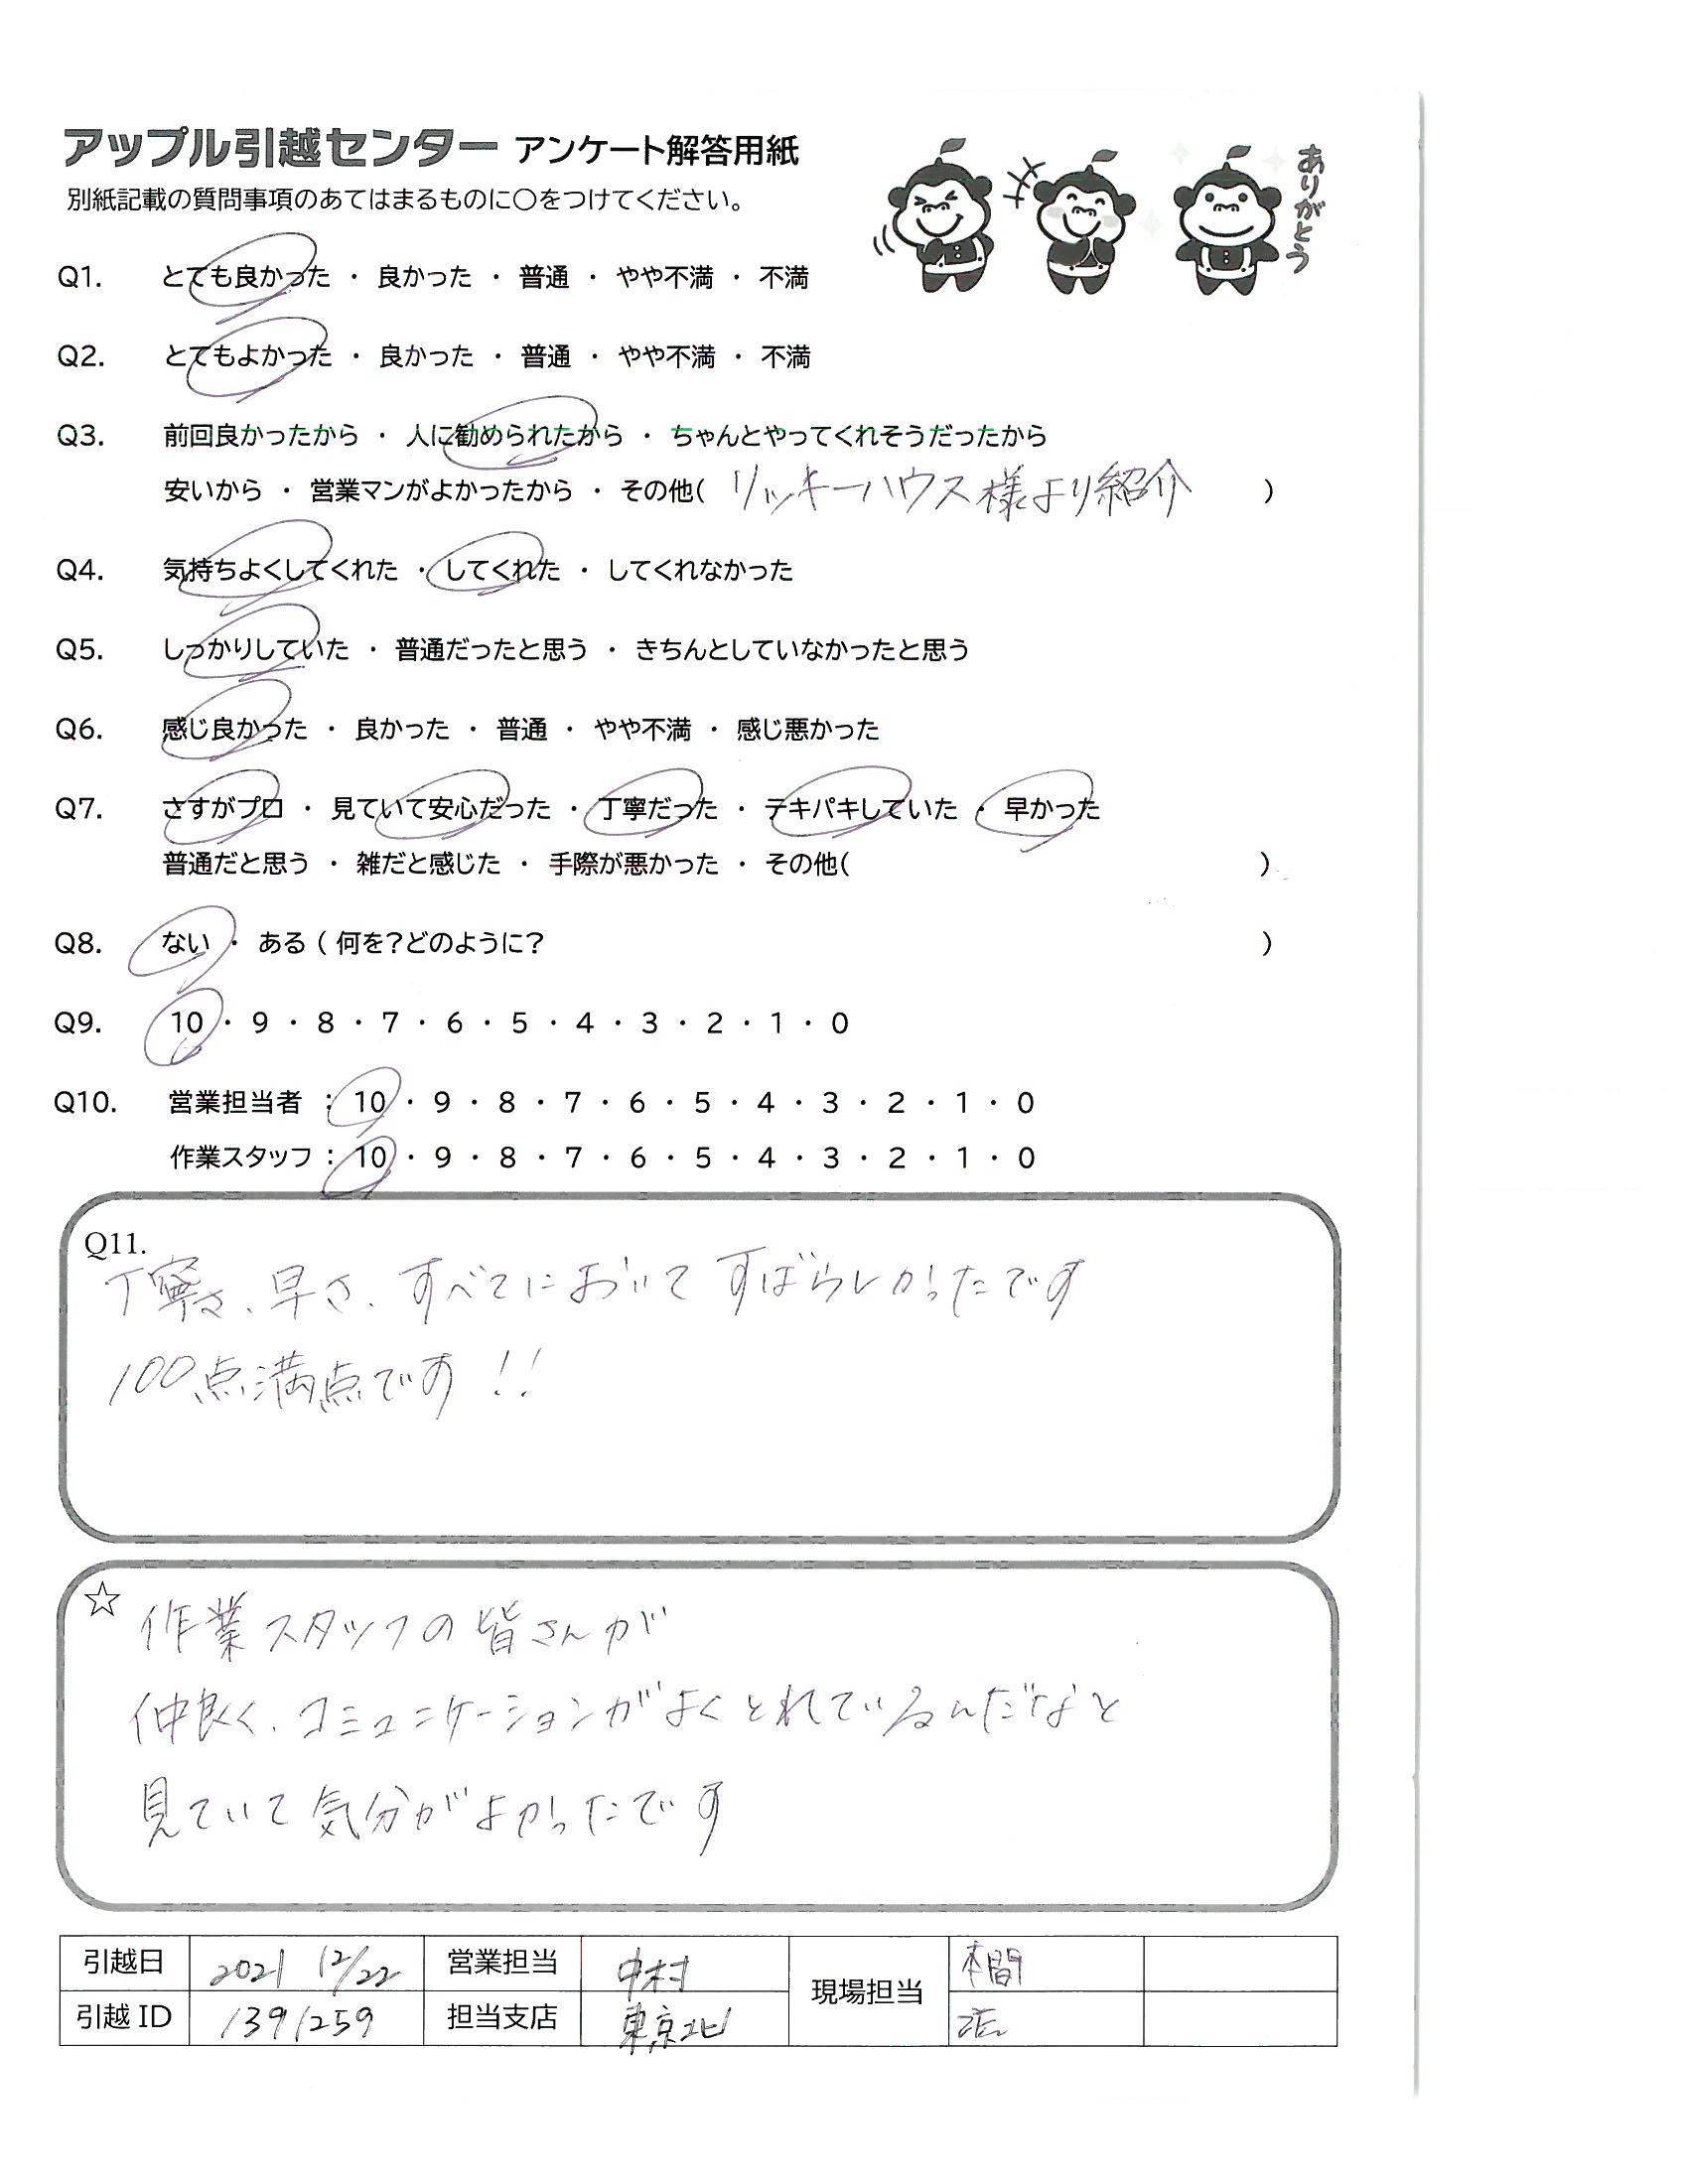 アップル引越センター アンケート解答用紙
別紙記載の質問事項のあてはまるものに○をつけてください。
ありがとう
Q1. とても良かった ・ 良かった ・ 普通 ・ やや不満 ・ 不満
Q2. とてもよかった ・ 良かった ・ 普通 ・ やや不満 ・ 不満
Q3. 前回良かったから ・ 人に勧められたから ・ ちゃんとやってくれそうだったから
安いから ・ 営業マンがよかったから ・ その他( リッキーハウス様より紹介 )
Q4. 気持ちよくしてくれた ・ してくれた ・ してくれなかった
Q5. しっかりしていた ・ 普通だったと思う ・ きちんとしていなかったと思う
Q6. 感じ良かった ・ 良かった ・ 普通 ・ やや不満 ・ 感じ悪かった
Q7. さすがプロ ・ 見ていて安心だった ・ 丁寧だった ・ テキパキしていた ・ 早かった
普通だと思う ・ 雑だと感じた ・ 手際が悪かった ・ その他( )
Q8. ない ・ ある ( 何を?どのように? )
Q9. 10 ・ 9 ・ 8 ・ 7 ・ 6 ・ 5 ・ 4 ・ 3 ・ 2 ・ 1 ・ 0
Q10. 営業担当者 : 10 ・ 9 ・ 8 ・ 7 ・ 6 ・ 5 ・ 4 ・ 3 ・ 2 ・ 1 ・ 0
作業スタッフ : 10 ・ 9 ・ 8 ・ 7 ・ 6 ・ 5 ・ 4 ・ 3 ・ 2 ・ 1 ・ 0
Q11.
丁寧さ、早さ、すべてにおいてすばらしかったです
100点満点です!!
☆
作業スタッフの皆さんが
仲良く、コミュニケーションがよくとれているんだなと
見ていて気分がよかったです
引越日 2021 12/22 営業担当 中村 現場担当 本間
引越ID 1391259 担当支店 東京北